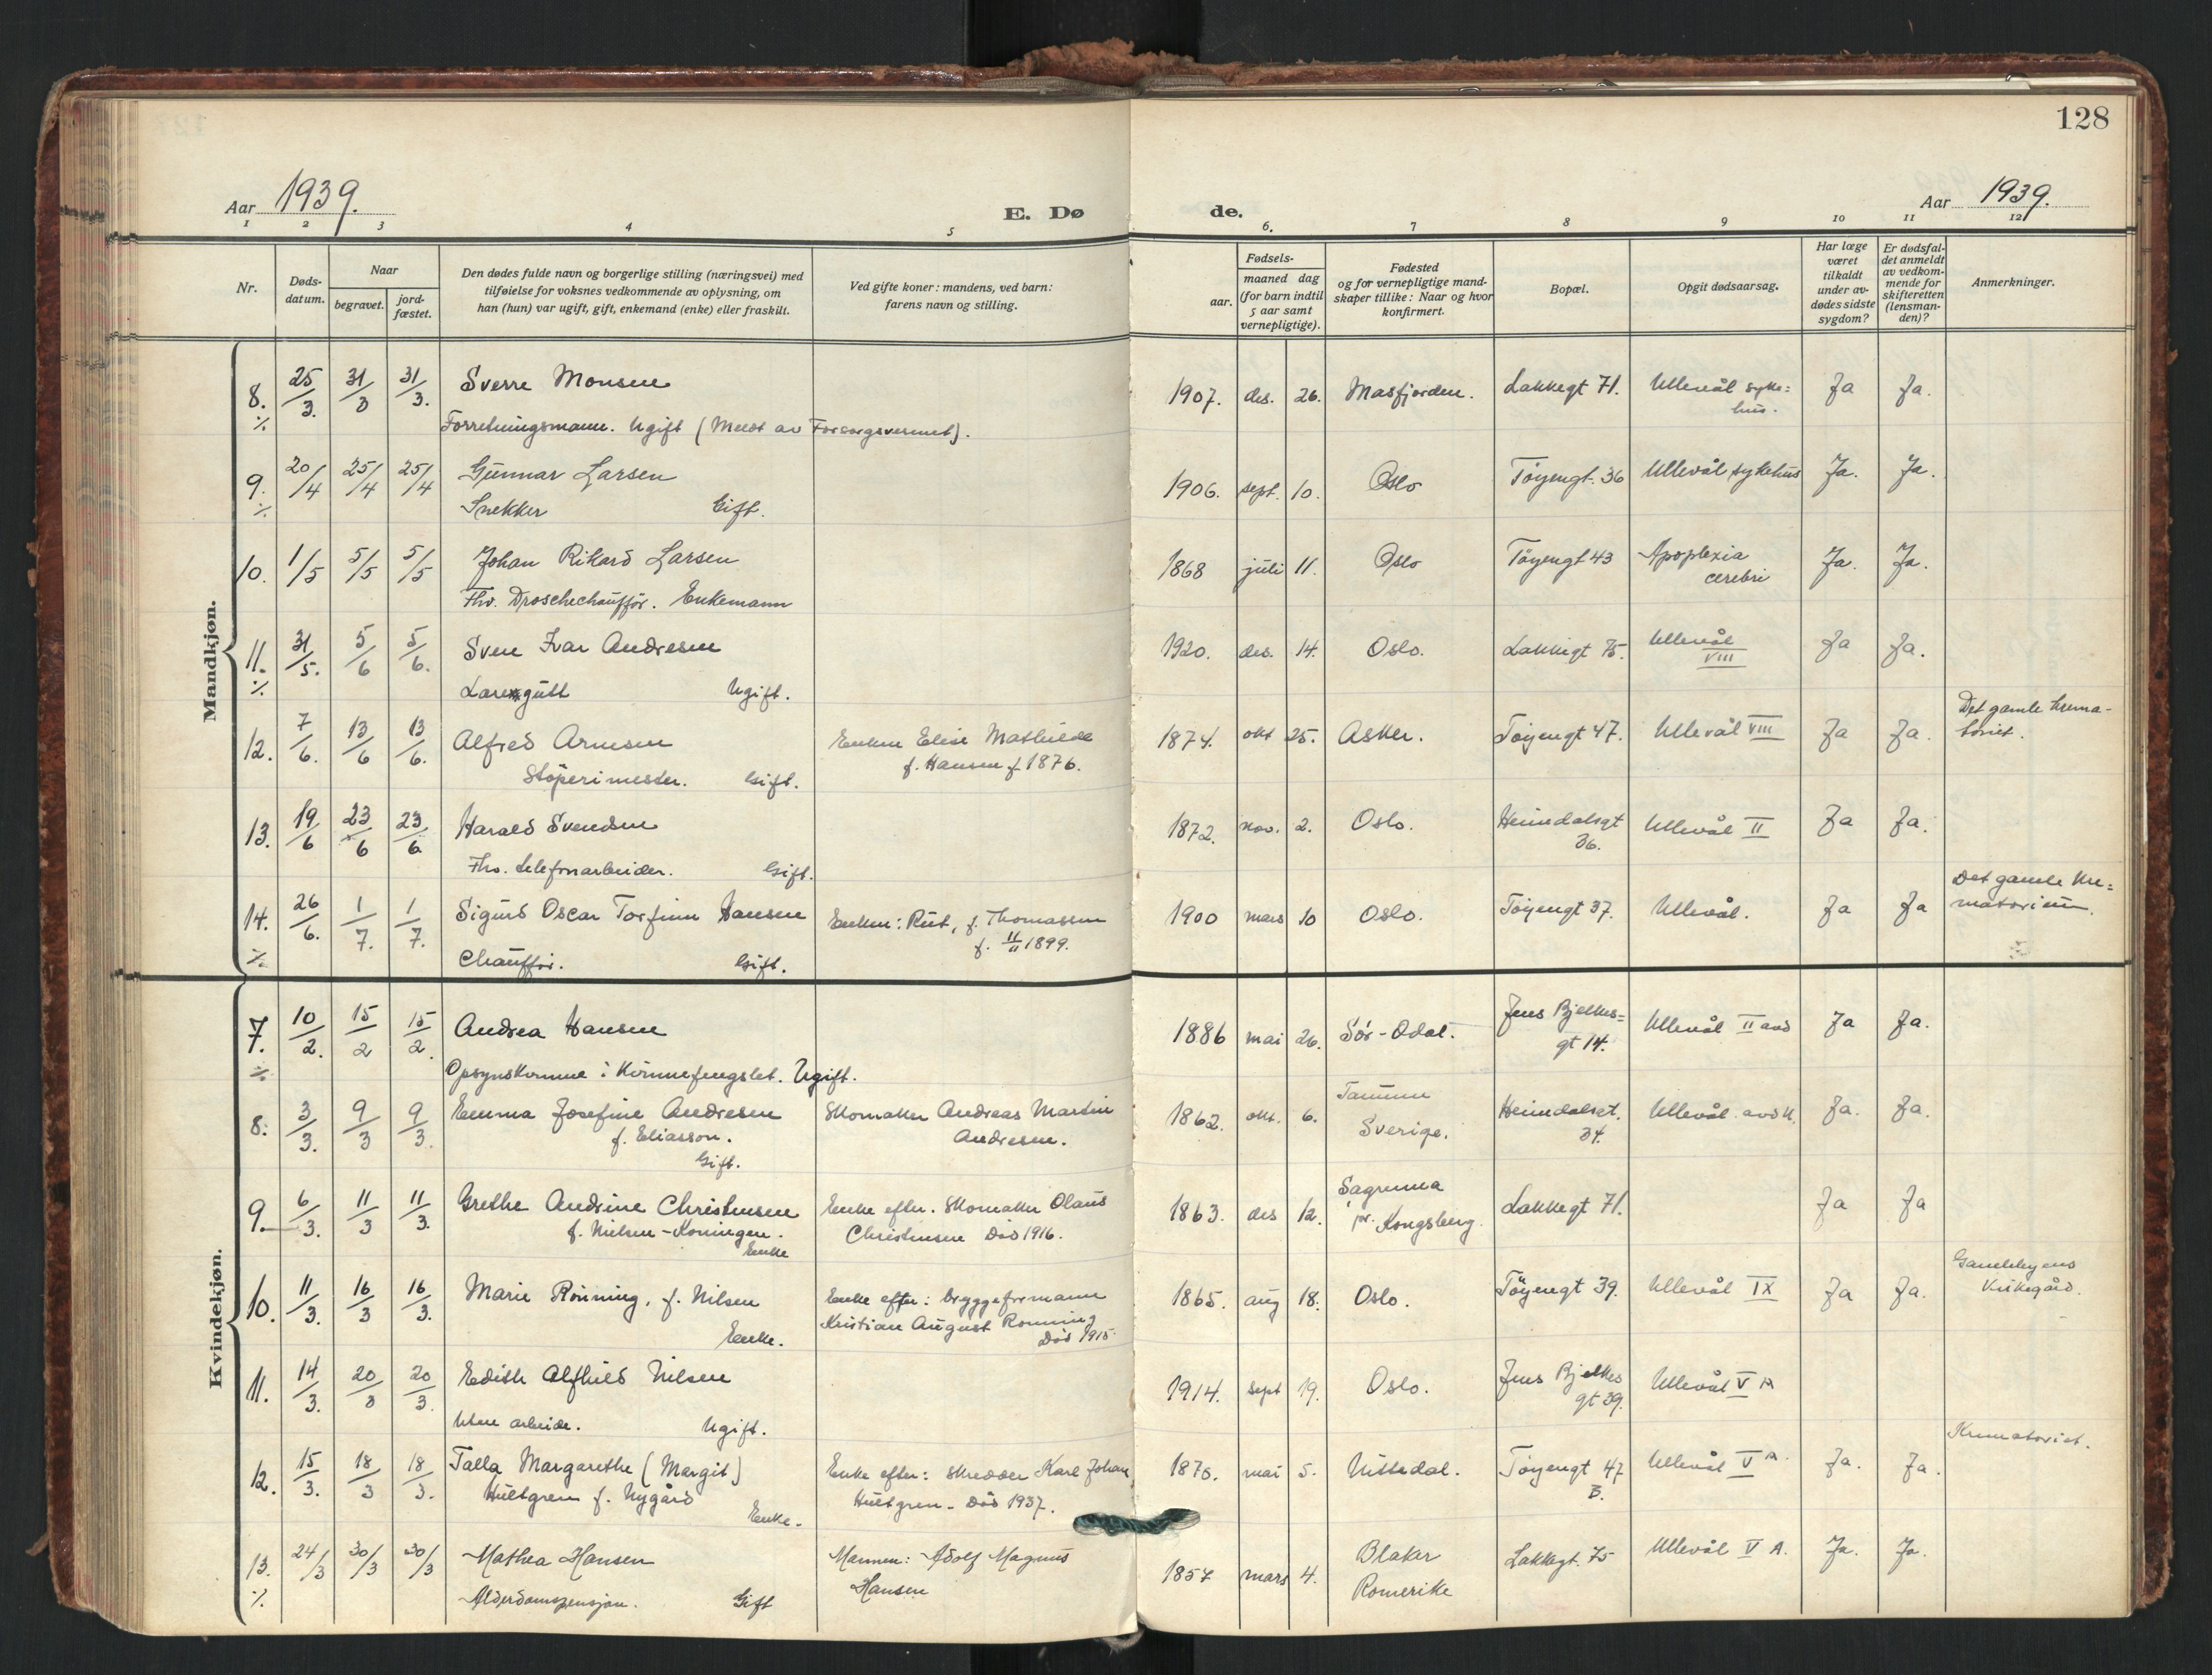 128
Aar 1939.
E. Dø de.
Aar 1939.
1 2 3 4 5 6. 7 8 9 10 11 12
Nr.
Døds-
datum.
Naar
begravet.
jord-
fæstet.
Den dødes fulde navn og borgerlige stilling (næringsvei) med
tilføielse for voksnes vedkommende av oplysning, om
han (hun) var ugift, gift, enkemand (enke) eller fraskilt.
Ved gifte koner: mandens, ved barn:
farens navn og stilling.
aar.
Fødsels-
maaned dag
(for barn indtil
5 aar samt
vernepligtige).
Fødested
og for vernepligtige mand-
skaper tillike: Naar og hvor
konfirmert.
Bopæl.
Opgit dødsaarsag.
Har læge
været
tilkaldt
under av-
dødes sidste
sygdom?
Er dødsfal-
det anmeldt
av vedkom-
mende for
skifteretten
(lensman-
den)?
Anmerkninger.
Mandkjøn.
8. 25/3. 31/3 31/3. Sverre Monsen 1907. des. 26. Masfjorden. Lakkegt 71. Ullevål syke=
hus. Ja Ja.
Forretningsmann. Ugift (Meldt av Forsorgsvesenet).
9. 20/4 25/4 25/4 Gunnar Larsen 1906. sept. 10. Oslo Tøyengt. 36 Ullevål sykehus Ja. Ja.
Snekker Gift.
10. 1/5 5/5 5/5 Johan Rikard Larsen 1868 juli 11. Oslo Tøyengt 43 Apoplexia
cerebri Ja. Ja.
Fhv. Droschechauffør. Enkemann
11. 31/5. 5/6 5/6. Sven Ivar Andresen 1920. des. 14. Oslo. Lakkegt 75. Ullevål
VIII Ja Ja.
gutt Ugift.
12. 7/6. 13/6 13/6. Alfred Arnesen Enken Elise Mathilde
f. Hansen f 1876. 1874. okt 25. Asker. Tøyengt 47. Ullevål VIII Ja Ja. Det gamle krema-
toriet.
Støperimester. Gift.
13. 19/6 23/6 23/6 Harald Svendsen 1872. nov. 2. Oslo. Heimdalsgt
36. Ullevål II Ja Ja.
Fhv. telefonarbeider. Gift.
14. 26/6. 1/7. 1/7. Sigurd Oscar Torfinn Hansen Enken: Rut, f. Thomassen
f. 11/11 1899. 1900 mars 10 Oslo. Tøyengt 37. Ullevål. Ja Ja Det gamle kre=
matorium.
Chauffør. Gift.
Kvindekjøn.
7. 10/2. 15/2 15/2. Andrea Hansen 1886 mai 26. Sør-Odal. Jens Bjelkes=
gt 14. Ullevål II avd Ja Ja.
Opsynskvinne i Kvinnefengslet. Ugift.
8. 3/3. 9/3 9/3. Emma Josefine Andresen
f. Eliasson.
Gift. Skomaker Andreas Martin
Andresen. 1862. okt. 6. Tanum
Sverige. Heimdalsgt.
34. Ullevål avd Ja. Ja.
9. 6/3. 11/3 11/3. Grethe Andrine Christensen
f. Nielsen-Koningen.
Enke Enke efter. Skomaker Olaus
Christensen Død 1916. 1863. des 12. Sagrenna
pr. Kongsberg. Lakkegt 71. Ja Ja
10. 11/3. 16/3 16/3. Marie Rønning, f. Nilsen
Enke. Enke efter: bryggeformann
Kristian August Rønning
Død 1915. 1865. aug 18. Oslo. Tøyengt 39. Ullevål IX Ja Ja. Gamlebyens
Kirkegård.
11. 14/3. 20/3 20/3. Edith Alfhild Nilsen 1914. sept 19. Oslo. Jens Bjelkes
gt 39. Ullevål V A
Uten arbeide. Ugift.
12. 15/3. 18/3 18/3. Talla Margarethe (Margit)
Hultgren f. Nygård
Enke. Enke efter: skredder Karl Johan
Hultgren - Død 1937. mai 5. Nittedal. Tøyengt 47
B. Ullevål V A. Ja. Ja. Krematoriet.
13. 24/3 30/3 30/3 Mathea Hansen Mannen: Adolf Magnus
Hansen 1857 mars 4. Blaker
Romerike Lakkegt. 75 Ullevål V A. Ja. Ja.
Alderdomspensjon. Gift